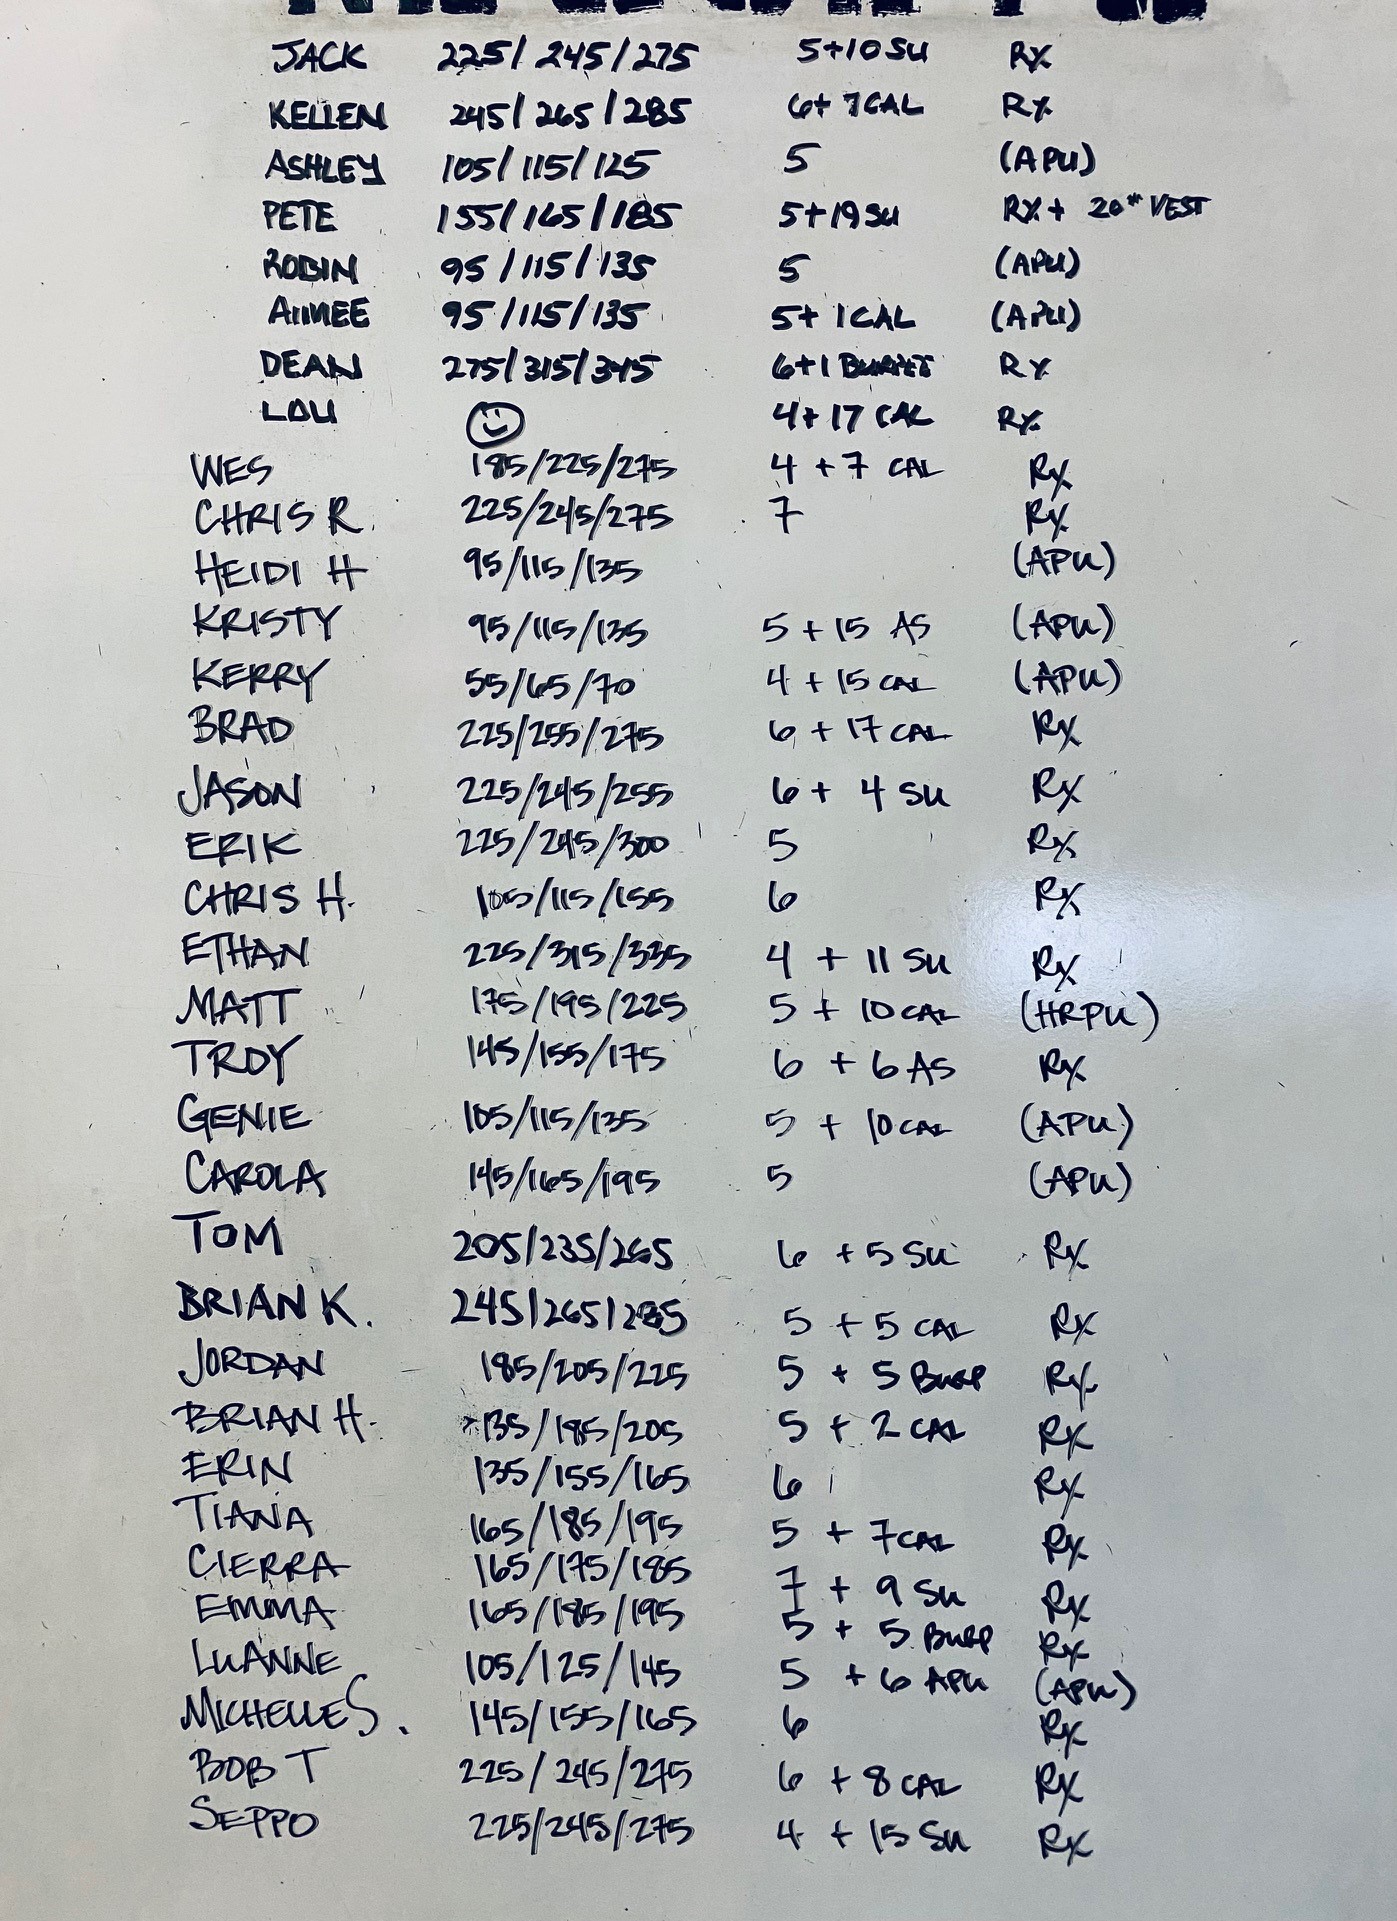 JACK 225/245/275 5+10 SU Rx
KELLEN 245/265/285 6+7CAL Rx
ASHLEY 105/115/125 5 (APU)
PETE 155/165/185 5+19SU Rx+ 20# VEST
ROBIN 95/115/135 5 (APU)
AIMEE 95/115/135 5+1CAL (APU)
DEAN 275/315/345 6+1 Rx
LOU 4+17 CAL Rx
WES 185/225/275 4+7 CAL Rx
CHRIS R. 225/245/275 7 Rx
HEIDI H 95/115/135 (APU)
KRISTY 95/115/135 5+15 AS (APU)
KERRY 55/65/70 4+15 CAL (APU)
BRAD 225/255/275 6+17 CAL Rx
JASON 225/245/255 6+4 SU Rx
ERIK 225/245/300 5 Rx
CHRIS H. 105/115/155 6 Rx
ETHAN 225/315/335 4+11 SU Rx
MATT 175/195/225 5+10 CAL (HRPU)
TROY 145/155/175 6+6 AS Rx
GENIE 105/115/135 5+10 CAL (APU)
CAROLA 145/165/195 5 (APU)
TOM 205/235/265 6+5 SU Rx
BRIAN K. 245/265/285 5+5 CAL Rx
JORDAN 185/205/225 5+5 BURP Rx
BRIAN H. 135/185/205 5+2 CAL Rx
ERIN 135/155/165 6 Rx
TIANA 165/185/195 5+7CAL Rx
CIERRA 165/175/185 7+9 SU Rx
EMMA 165/185/195 5+5 BURP Rx
LUANNE 105/125/145 5+6 APU (APU)
MICHELLE S. 145/155/165 6 Rx
BOB T 225/245/275 6+8 CAL Rx
SEPPO 225/245/275 4+15 SU Rx